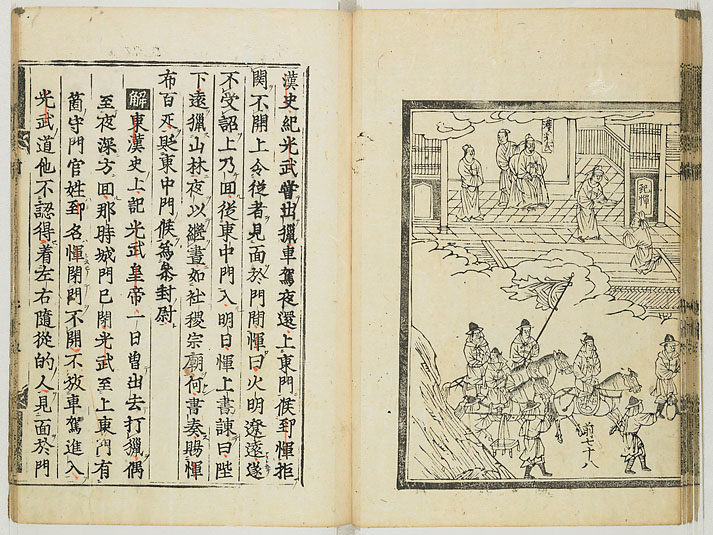 漢光武
郅惲
前七十八
漢史紀光武嘗出獵車駕夜還上東門候郅惲拒
関不開上令從者見面於門間惲曰火明遼遠遂
不受詔上乃回從東中門入明日惲上書諫曰陛
下遠獵山林夜以繼晝如社稷宗廟何書奏賜惲
布百疋貶東中門候爲叅封尉
解東漢史上記光武皇帝一日曾出去打獵偶
至夜深方回那時城門已閉光武至上東門有
箇守門官姓郅名惲閉門不開不放車駕進入
光武道他不認得着左右隨從的人見面於門